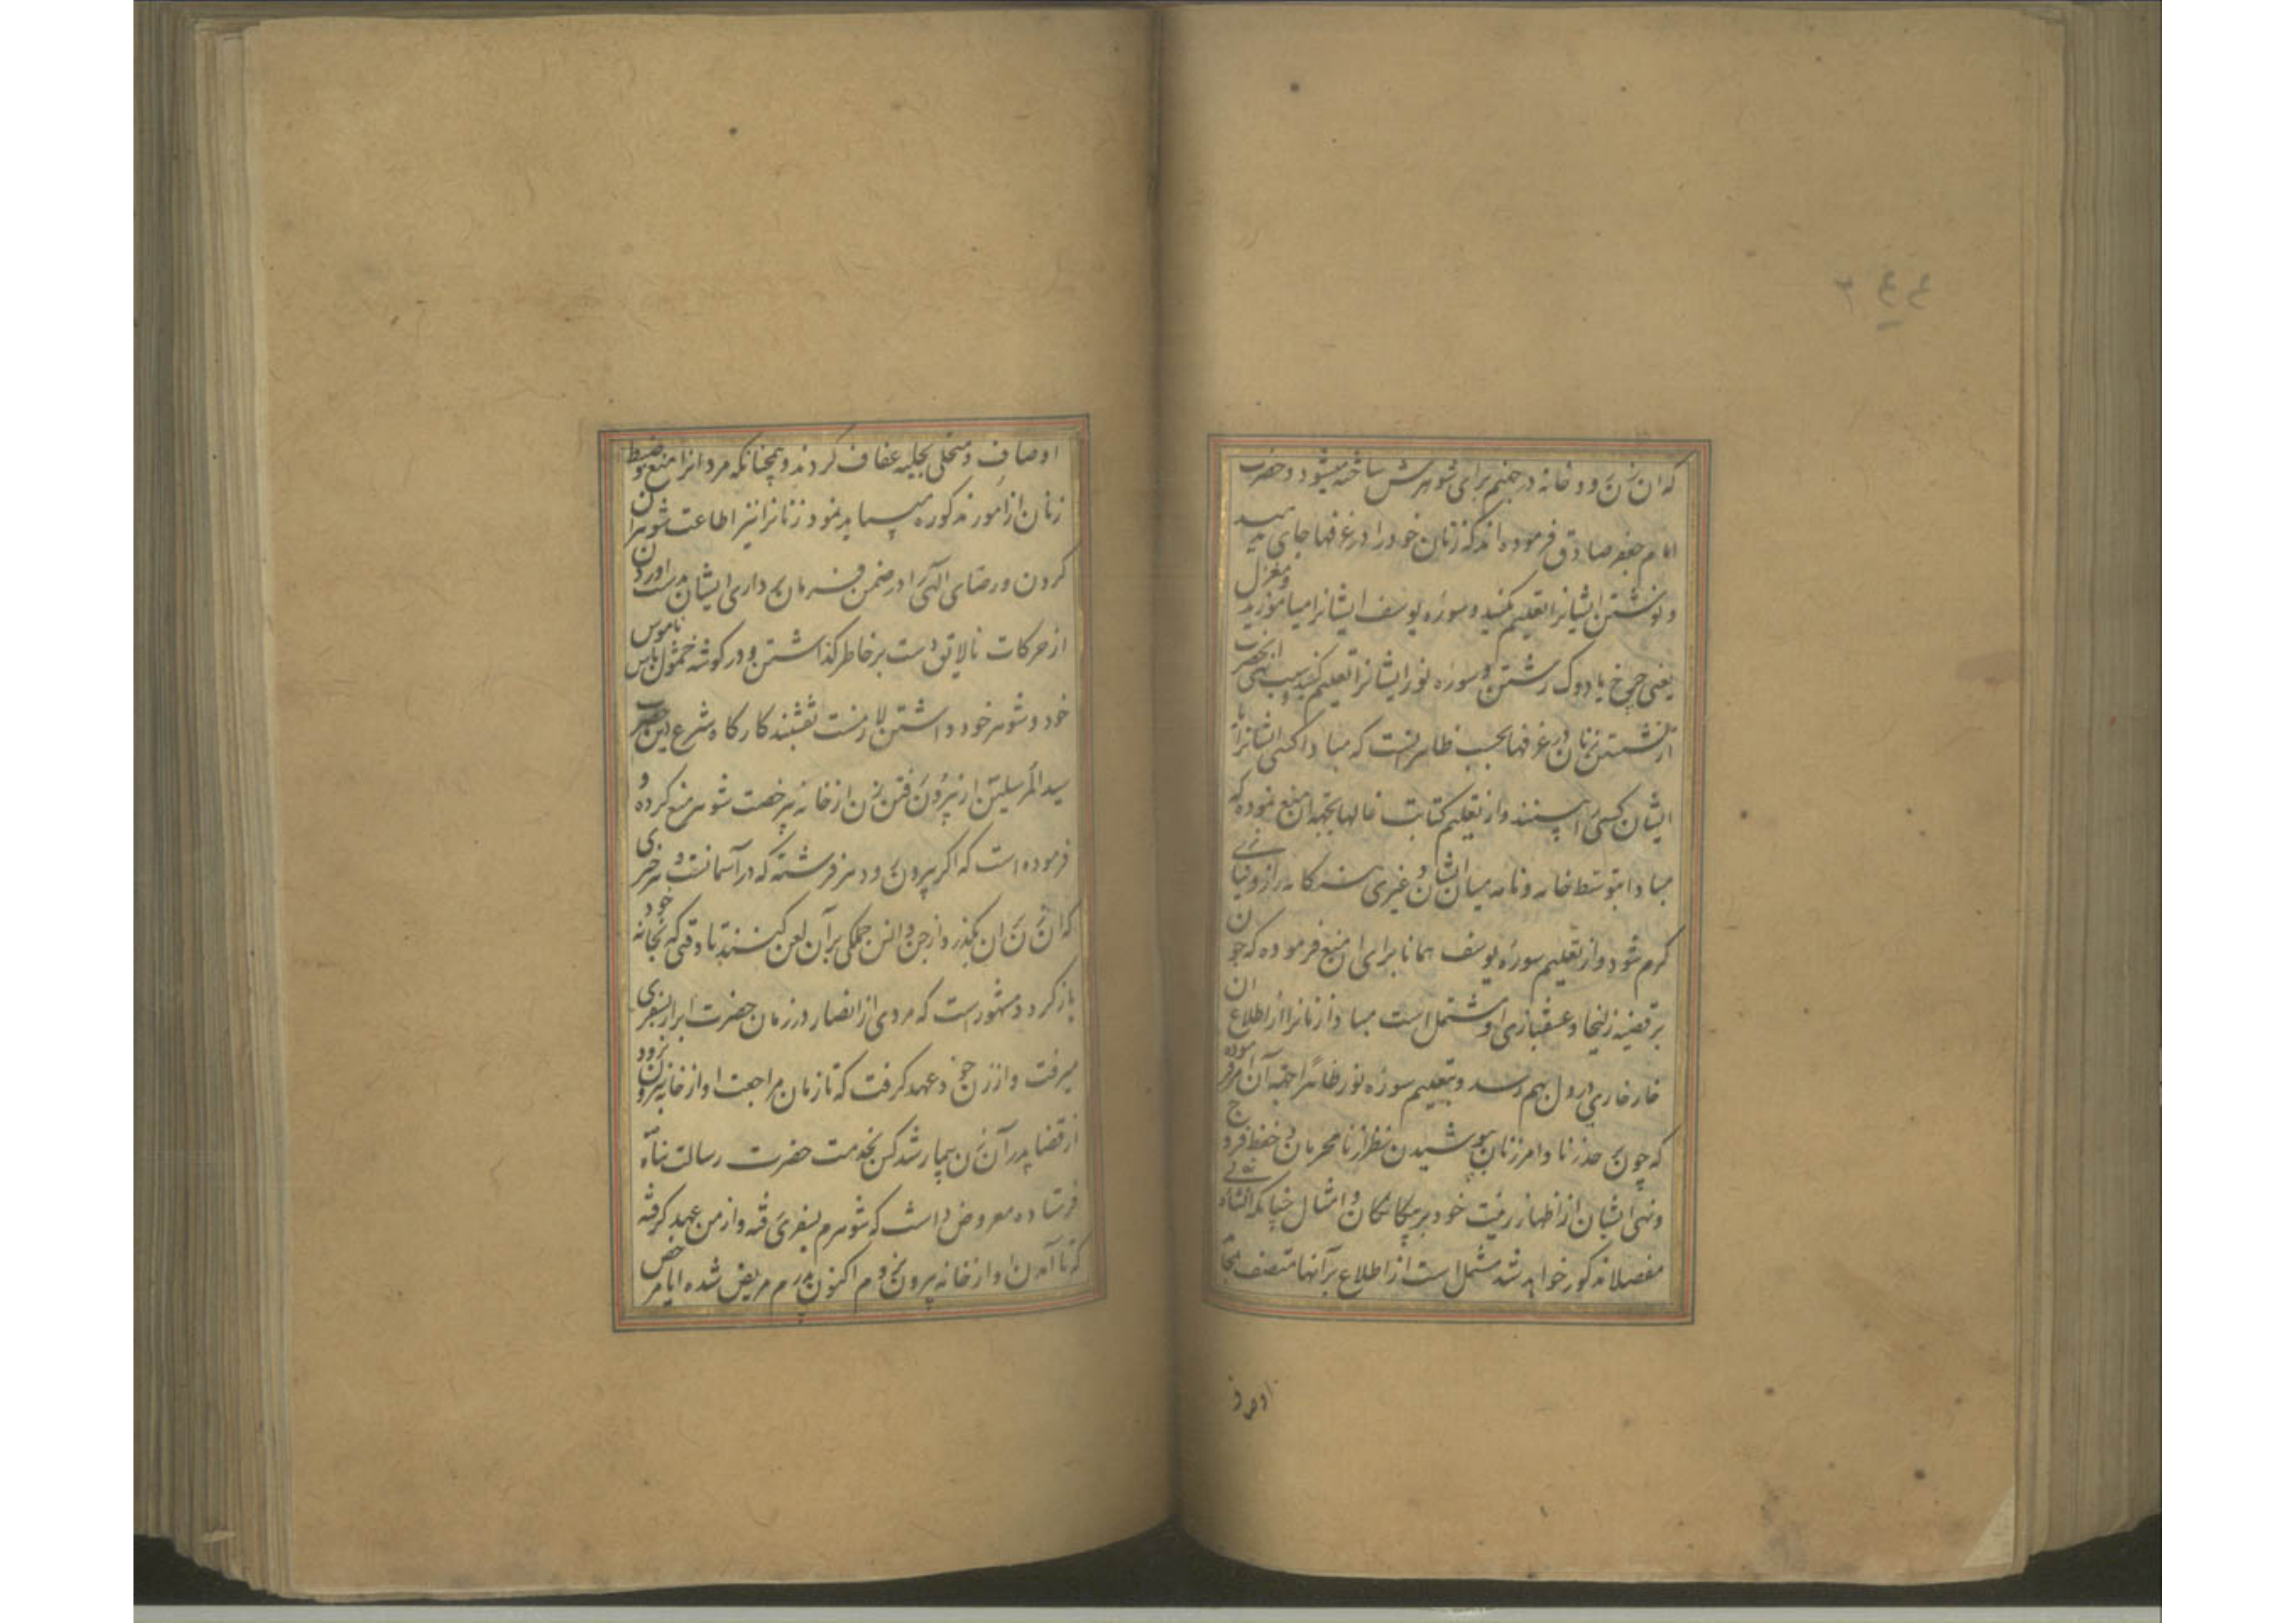 که ان زن رود خانه در جهنم برای شوهرش ساخته میشود و حضرت
امام جعفر صادق فرموده اند که زنان خود را در غرفها جای مدهید
و نوشتن ایشانرا تعلیم مکنید و سوره یوسف ایشانرا میاموزید و مغزل
یعنی چرخ یا دوک رشتن و سوره نور ایشانرا تعلیم کنید و سبب نهی انحضرت
از نشستن زنان در غرفها بحسب ظاهر انست که مبادا کسی ایشانرا یا
ایشان کسی را بینند و از تعلیم کتابت غالبا بجهة ان منع نموده که
مبادا بتوسط خامه و نامه میان ایشان و غیری هنگامه راز و نیاز
کرم شود و از تعلیم سوره یوسف همانا برای ان منع فرموده که چون
بر قضیه زلیخا و عشقبازی او مشتملست مبادا زنانرا از اطلاع ان
خارخاری در دل بهم رسد و بتعلیم سوره نور ظاهرا بجهة آن امر فرموده
که چون بر حد زنا و امر زنان بپوشیدن نظر از نامحرمان و حفظ فروج
و نهی ایشان از اظهار زینت خود بر بیگانگان و امثال چنانکه انشاء الله تعالی
مفصلا مذکور خواهد شد مشتمل است از اطلاع بر آنها متصف بآن
اوصاف
اوصاف و متحلی بحلیه عفاف کردند و همچنانکه مردانرا منع و ضبط
زنان از امور مذکوره میباید نمود زنانرا نیز اطاعت شوهران
کردن و رضای الهی را در ضمن فرمان برداری ایشان بدست اوردن
از حرکات نالایق دست بر خاطر گذاشتن و در کوشه خمول پاس ناموس
خود و شوهر خود داشتن لازمست نقشبند کارگاه شرع دین حضرت
سید المرسلین از بیرون رفتن زن از خانه بیرخصت شوهر منع کرده و
فرموده است که اگر بیرون رود هر فرشته که در آسمانست و هر چیزی
که آن زن بر ان بگذرد از جن و انس جملگی بر آن لعن کنند تا وقتی که بخانه خود
باز کردد و مشهور است که مردی از انصار در زمان حضرت ابرار بسفری
میرفت و از زن خود عهد گرفت که تا زمان مراجعت او از خانه بیرون نرود
از قضا پدر آن زن بیمار شد کس بخدمت حضرت رسالت پناه
فرستاده معروض داشت که شوهرم بسفری رفته و از من عهد گرفته
که تا آمدن او از خانه بیرون نروم اکنون پدرم مریض شده ایا مرخص